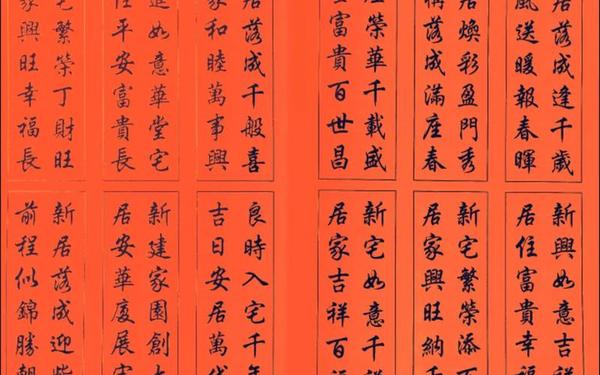 居落成逢千歲
風送暖報春暉
居煥彩盈門秀
落成滿座春
榮華千載盛
富貴百世昌
居落成千般喜
家和睦萬事興
如意華堂宅
平安富貴長
宅繁榮丁財旺
家興旺幸福長
新興如意吉祥
居住富貴幸福
新宅繁榮添
居家興旺納千
新宅如意千
居家吉祥百
良時入宅千年
吉日安居萬
新建家園創
居安華廈展
新居落成迎
前程似錦勝